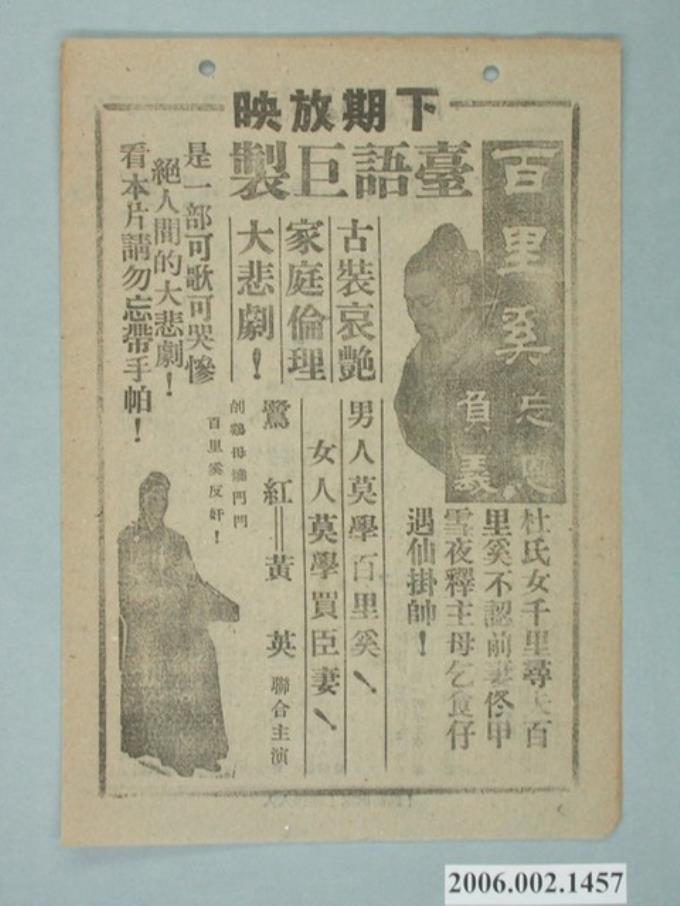 下期放映
臺語巨製
百里奚
忘恩
負義
杜氏女千里尋夫百
里奚不認前妻佟甲
雪夜釋主母乞食仔
遇仙掛帥！
古裝哀艷
家庭倫理
大悲劇！
男人莫學百里奚！
女人莫學買臣妻！
鷺紅＝黃英 聯合主演
百里奚反奸！
是一部可歌可哭慘
絕人間的大悲劇！
看本片請勿忘帶手帕！
2006.002.1457